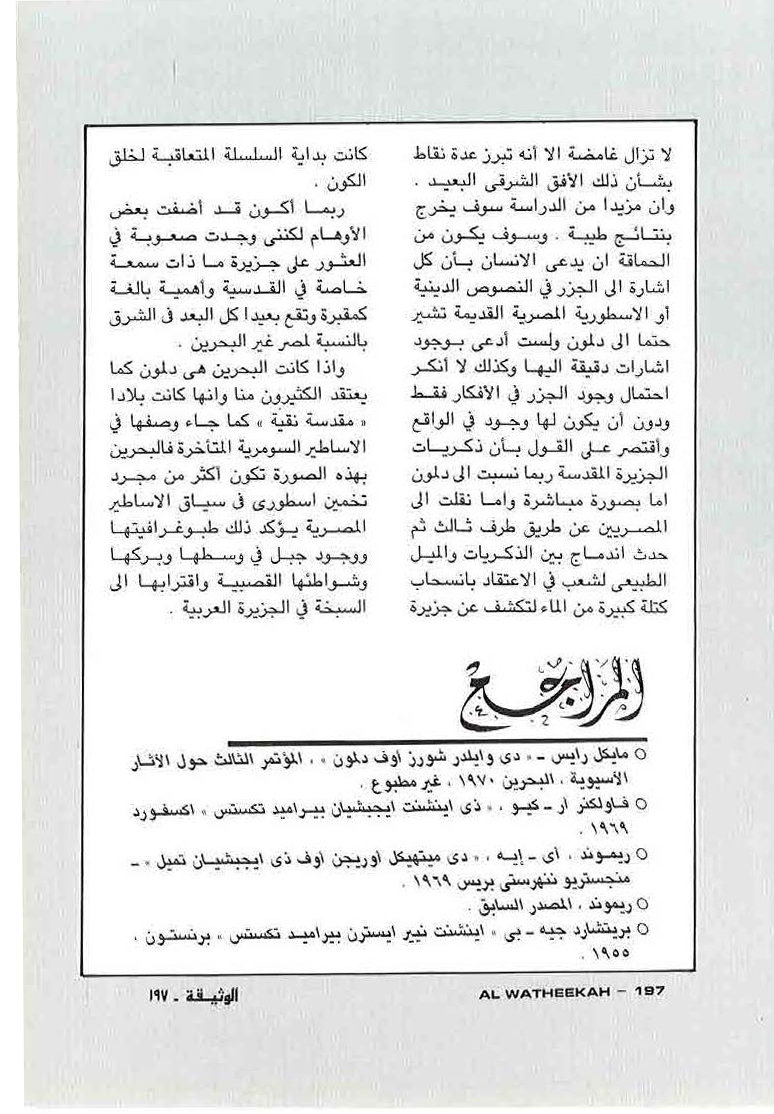 لا تزال غامضة الا أنه تبرز عدة نقاط
بشأن ذلك الأفق الشرقى البعيد .
وان مزيدا من الدراسة سوف يخرج
بنتائج طيبة . وسوف يكون من
الحماقة ان يدعى الانسان بأن كل
اشارة الى الجزر في النصوص الدينية
أو الاسطورية المصرية القديمة تشير
حتما الى دلمون ولست أدعى بوجود
اشارات دقيقة اليها وكذلك لا أنكر
احتمال وجود الجزر في الأفكار فقط
ودون أن يكون لها وجود في الواقع
وأقتصر على القول بأن ذكريات
الجزيرة المقدسة ربما نسبت الى دلمون
اما بصورة مباشرة واما نقلت الى
المصريين عن طريق طرف ثالث ثم
حدث اندماج بين الذكريات والميل
الطبيعى لشعب في الاعتقاد بانسحاب
كتلة كبيرة من الماء لتكشف عن جزيرة
كانت بداية السلسلة المتعاقبة لخلق
الكون .
ربما أكون قد أضفت بعض
الأوهام لكننى وجدت صعوبة في
العثور على جزيرة ما ذات سمعة
خاصة في القدسية وأهمية بالغة
كمقبرة وتقع بعيدا كل البعد فى الشرق
بالنسبة لمصر غير البحرين .
واذا كانت البحرين هى دلمون كما
يعتقد الكثيرون منا وانها كانت بلادا
« مقدسة نقية » كما جاء وصفها في
الاساطير السومرية المتأخرة فالبحرين
بهذه الصورة تكون أكثر من مجرد
تخمين اسطورى فى سياق الاساطير
المصرية يؤكد ذلك طبوغرافيتها
ووجود جبل في وسطها وبركها
وشواطئها القصبية واقترابها الى
السبخة في الجزيرة العربية .
المراجع
○ مايكل رايس - « دى وايلدر شورز أوف دلمون » ، المؤتمر الثالث حول الآثار
الآسيوية ، البحرين ١٩٧٠ ، غير مطبوع .
○ فاولكنر آر - كيو ، « ذى اينشنت ايجبشيان بيراميد تكستس » اكسفورد
١٩٦٩ .
○ ريموند ، أى - إيه ، « دى ميتهيكل أوريجن أوف ذى ايجبشيان تمبل » -
منجستريو ننهرستى بريس ١٩٦٩ .
○ ريموند ، المصدر السابق .
○ بريتشارد جيه - بى « اينشنت نيير ايسترن بيراميد تكستس » برنستون ،
١٩٥٥ .
الوثيقة - ١٩٧
AL WATHEEKAH - 197